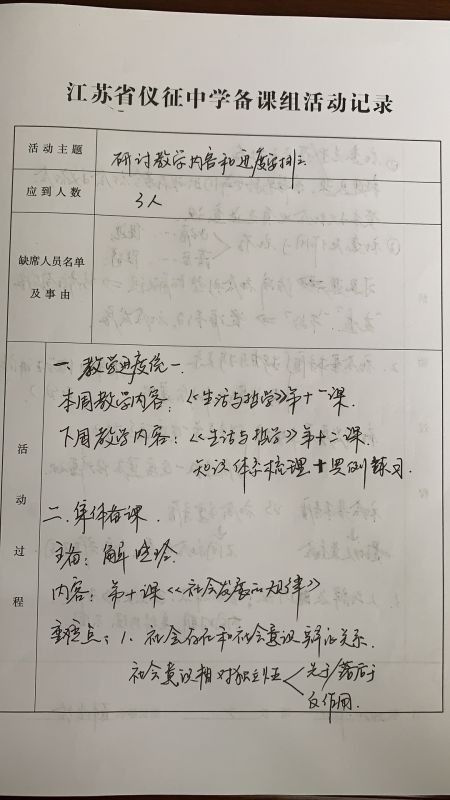 江苏省仪征中学备课组活动记录
活动主题
研讨教学内容和进度安排
应到人数
3人
缺席人员名单
及事由
活动过程
一、教学进度统一.
本周教学内容:《生活与哲学》第十一课.
下周教学内容:《生活与哲学》第十二课.
知识体系梳理+易例练习.
二、集体备课.
主备:解晓玲
内容:第十课《社会发展的规律》
重难点:1. 社会存在和社会意识辩证关系.
社会意识相对独立性
先于、落后于
反作用.